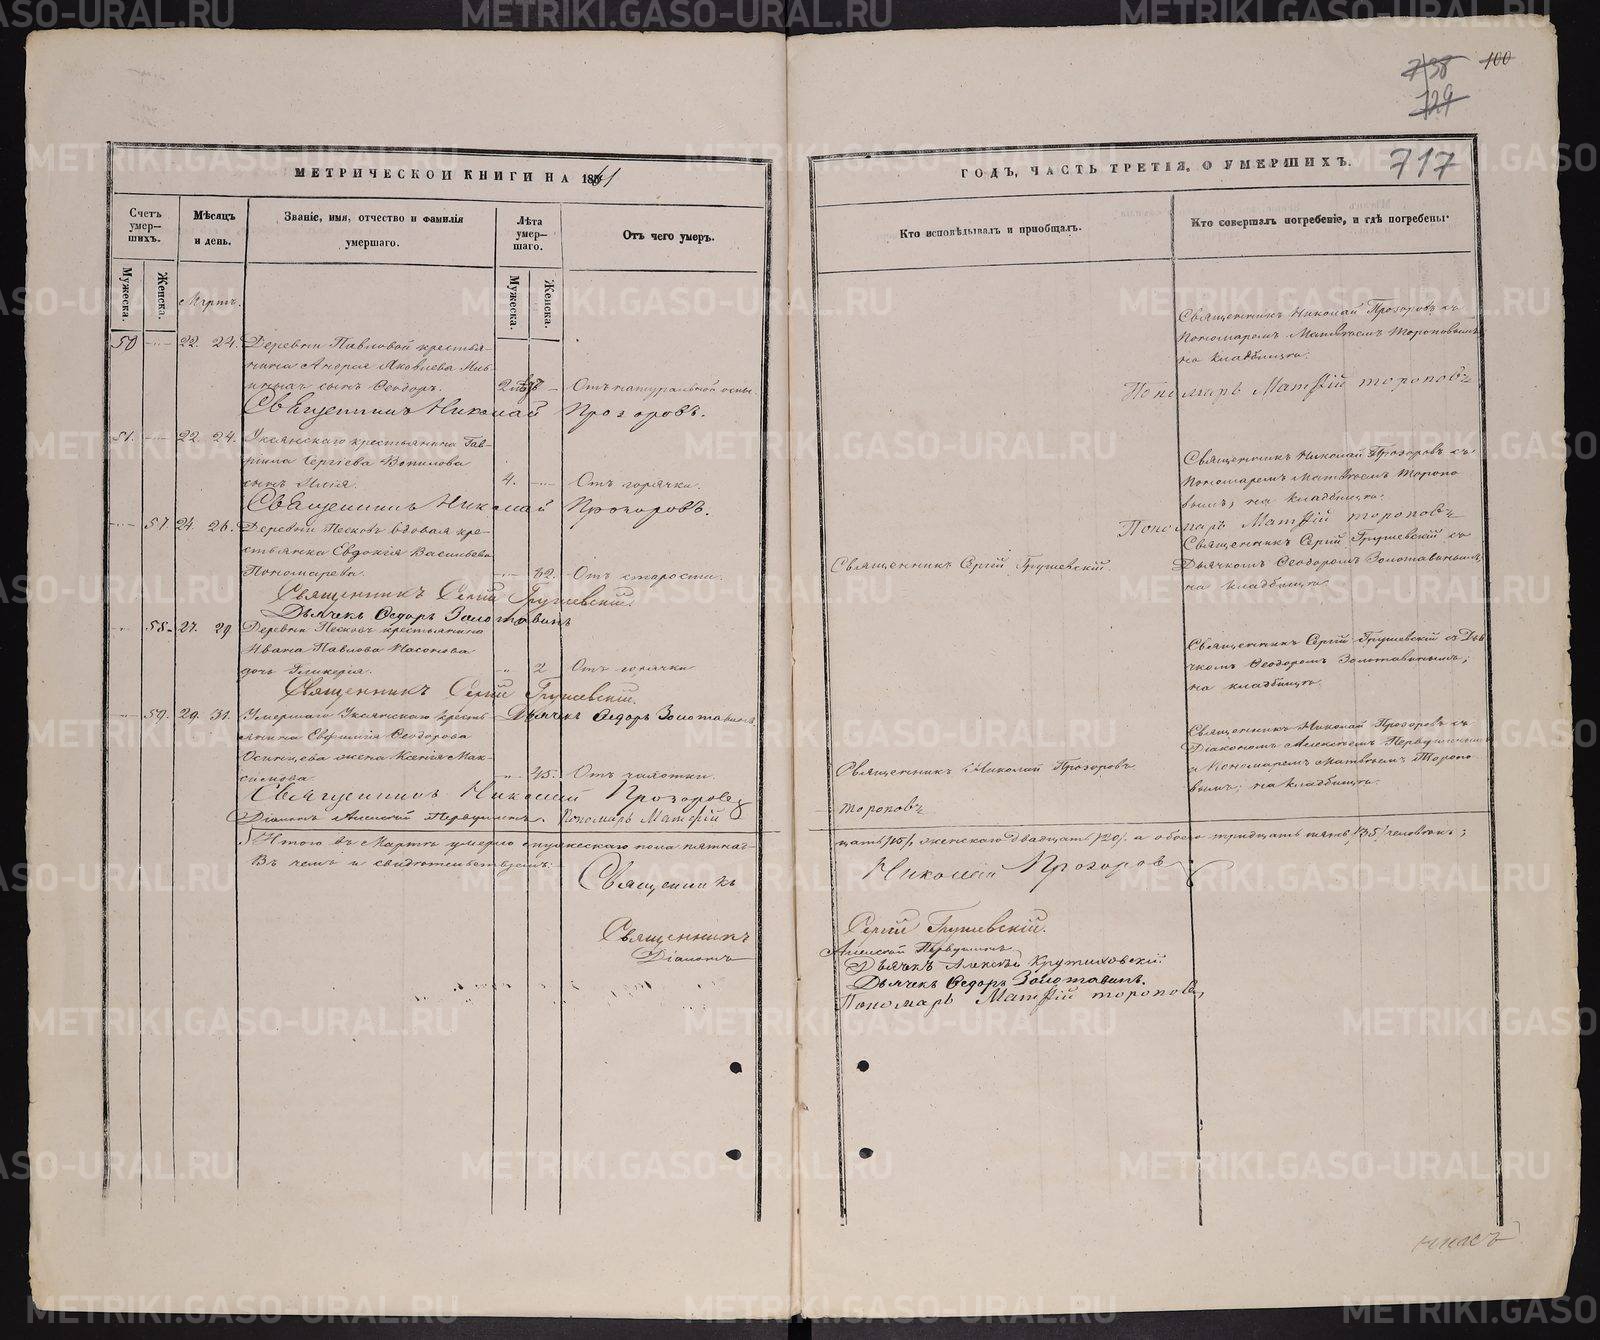 738
100
729
717
МЕТРИЧЕСКОИ КНИГИ НА 1861
ГОДЪ, ЧАСТЬ ТРЕТІЯ, О УМЕРШИХЪ.
Счетъ умер—шихъ.
Мужеска.
Женска.
Мѣсяцъ и день.
Званіе, имя, отчество и фамилія умершаго.
Лѣта умер—шаго.
Мужеска.
Женска.
Отъ чего умеръ.
Кто исповѣдывалъ и приобщалъ.
Кто совершалъ погребеніе, и гдѣ погребены.
Мартъ.
50 22. 24. Деревни Павловой крестья-
нина Андрея Яковлева
сынъ Ѳеодоръ. Отъ натуральной оспы.
Священникъ Николай Прозоровъ.
Священникъ Николай Прозоровъ съ
Пономаремъ Матвѣемъ Тороповымъ
на кладбищѣ.
Пономарь Матѳій Тороповъ
51. 22. 24. Уксянскаго крестьянина Гав-
ріила Сергіева Вопилова
сынъ Илія. 4. Отъ горячки.
Священникъ Николай Прозоровъ.
Священникъ Николай Прозоровъ съ
Пономаремъ Матвѣемъ Торопо
вымъ; на кладбищѣ.
Пономарь Матѳій Тороповъ
57 24. 26. Деревни Песковъ вдовая кре-
стьянка Евдокія Васильева
Пономарева. Отъ старости.
Священникъ Сергій Грушевскій
Дьячекъ Ѳедоръ Золотавинъ
Священникъ Сергій Грушевскій.
Священникъ Сергій Грушевскій съ
Дьячкомъ Ѳеодоромъ Золотавинымъ;
на кладбищѣ.
58. 27. 29 Деревни Песковъ крестьянина
Ивана Павлова Насонова
дочь Гликерія. 2 Отъ горячки
Священникъ Сергій Грушевскій.
Дьячекъ Ѳедоръ Золотавинъ
Священникъ Сергій Грушевскій съ Дья
чкомъ Ѳеодоромъ Золотавинымъ;
на кладбищѣ.
59. 29. 31. Умершаго Уксянскаго кресть
янина Евфимія Ѳеодорова
Осинцева жена Ксенія Мак-
симова. 45. Отъ чахотки.
Священникъ Николай Прозоровъ
Діаконъ Алексѣй Первушинъ. Пономарь Матѳій
Священникъ Николай Прозоровъ
Тороповъ
Священникъ Николай Прозоровъ съ
Діакономъ Алексѣемъ Первушинымъ
и Пономаремъ Матвѣемъ Торопо
вымъ; на кладбищѣ.
Итого въ Мартѣ умерло мужескаго пола пятнад-
цать /15/, женскаго двадцать /20/. а обоего тридцать пять /35/ человѣкъ;
Въ чемъ и свидѣтельствуемъ:
Священникъ Николай Прозоровъ
Священникъ Сергій Грушевскій.
Діаконъ Алексѣй Первушинъ
Дьячекъ Алексѣй Крутиховскій.
Дьячекъ Ѳедоръ Золотавинъ.
Пономарь Матѳій Тороповъ
METRIKI.GASO-URAL.RU